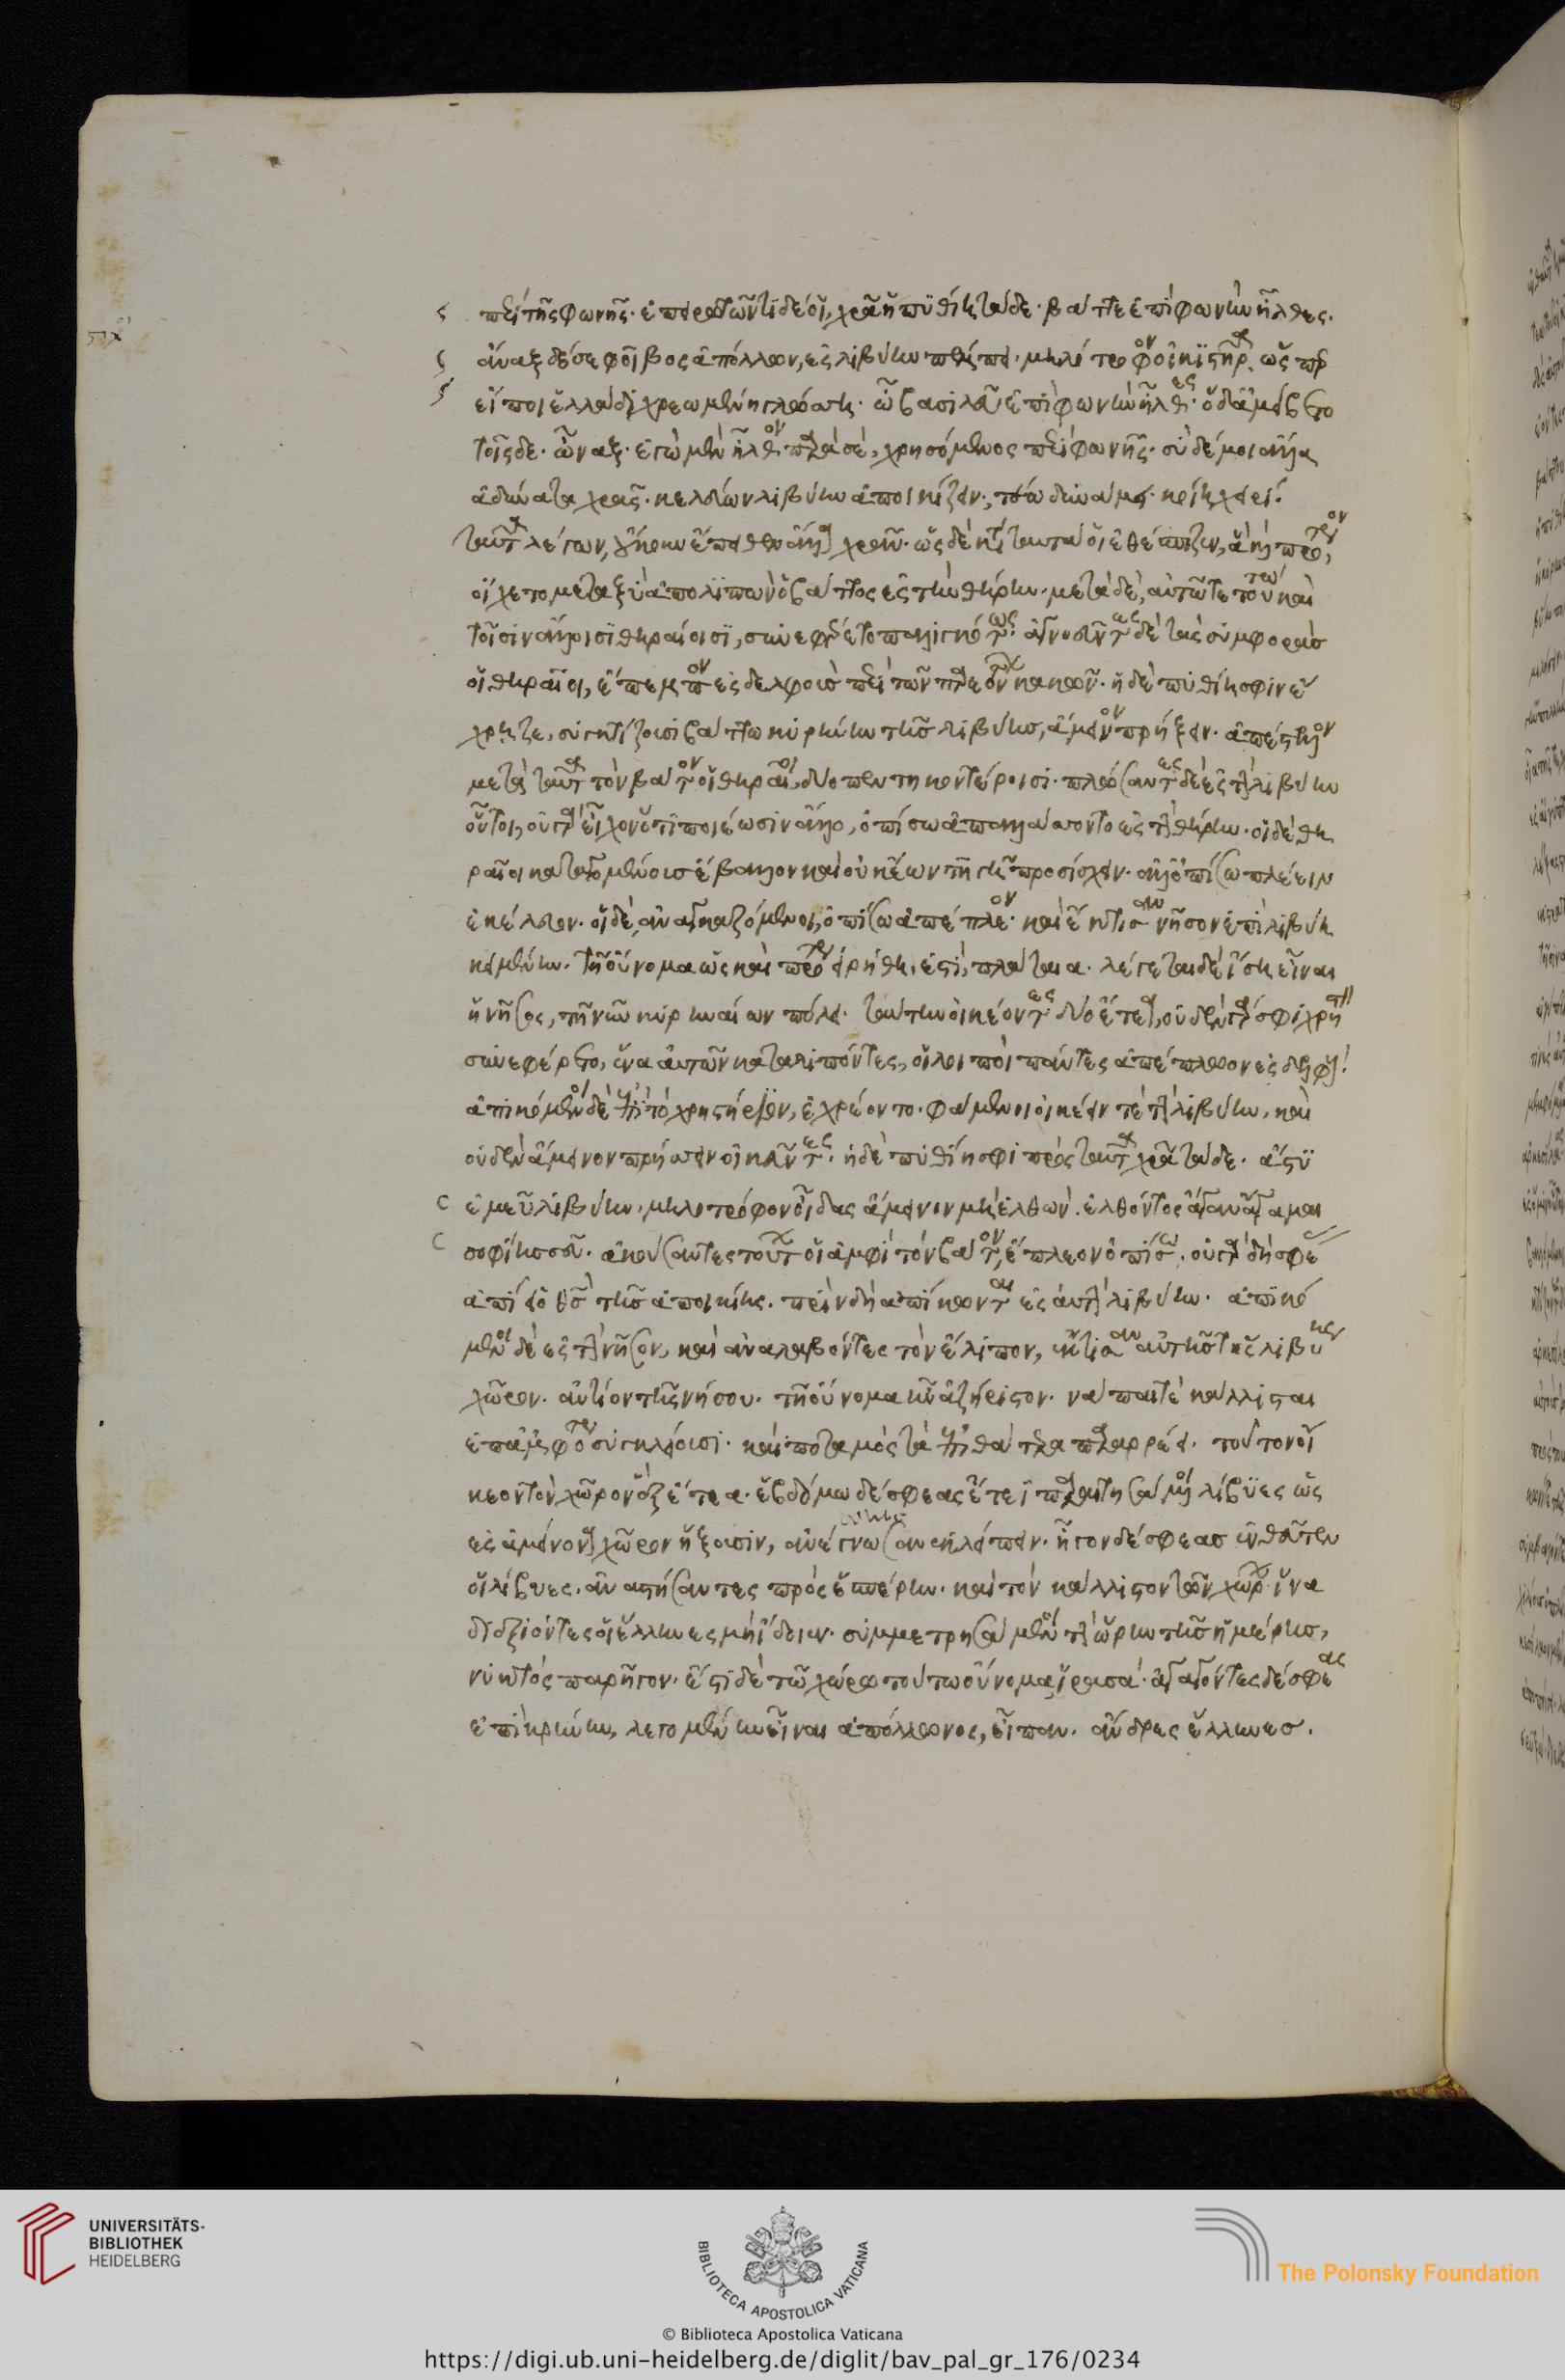 περὶ τῆς φωνῆς. ἐπειρωτῶντι δέ οἱ, χρᾶ ἡ πυθίη τάδε. βάττε ἐπὶ φωνὴν ἦλθες.
ἄναξ δέ σε φοῖβος ἀπόλλων, ἐς λιβύην πέμπει μηλοτρόφον οἰκιστῆρα. ὥσπερ
εἴποι ἑλλάδι χρεωμένη γλώσση. ὦ βασιλεῦ ἐπὶ φωνὴν ἦλθες. ὁ δ' ἀμείβετο
τοῖσδε. ὦναξ. ἐγὼ μὲν ἦλθον παρὰ σέ, χρησόμενος περὶ φωνῆς. σὺ δέ μοι ἄλλα
ἀδύνατα χρᾶς. κελεύων λιβύην ἀποικίζειν, τέω δυνάμει κοίη χειρί.
ταῦτα λέγων, οὔκων ἔπειθεν ἄλλα χρᾶν. ὡς δὲ κατὰ ταυτὰ οἱ ἐθέσπιζεν, ἃ καὶ πρότερον,
οἴχετο μεταξὺ ἀπολιπὼν ὁ βάττος ἐς τὴν θήρην. μετὰ δέ, αὐτῶ τε τούτω καὶ
τοῖσιν ἄλλοισι θηραίοισι, συνεφέρετο παλιγκότως. ἀγνοεῦντες δὲ τὰς συμφορὰς
οἱ θηραῖοι, ἔπεμπον ἐς δελφοὺς περὶ τῶν παρεόντων κακῶν. ἡ δὲ πυθίη σφιν ἔ
χρησε, συγκτίζουσι βάττω κυρήνην τῆς λιβύης, ἄμεινον πρήξειν. ἀπέστελλον
μετὰ ταῦτα τὸν βάττον οἱ θηραῖοι, δύο πεντηκοντέροισι. πλώσαντες δὲ ἐς τὴν λιβύην
οὗτοι, οὐ γὰρ εἶχον ὅ τι ποιέωσιν ἄλλο, ὀπίσω ἀπαλλάσσοντο ἐς τὴν θήρην. οἱ δὲ θη
ραῖοι καταγομένους ἔβαλλον καὶ οὐκ ἔων τῆ γῆ προσίσχειν. ἀλλ' ὀπίσω πλέειν
ἐκέλευον. οἱ δὲ, ἀναγκαζόμενοι, ὀπίσω ἀπέπλεον. καὶ ἔκτισαν νῆσον ἐπὶ λιβύη
κειμένην. τῆ οὔνομα ὡς καὶ πρότερον εἰρήθη, ἐστὶ πλάταια. λέγεται δὲ ἴση εἶναι
ἡ νῆσος, τῆ νῦν κυρηναίων πόλει. ταύτην οἰκέοντες δύο ἔτεα, οὐδὲν γάρ σφι χρηστὸν
συνεφέρετο, ἕνα αὐτῶν καταλιπόντες, οἱ λοιποὶ πάντες ἀπέπλωον ἐς δελφούς.
ἀπικόμενοι δὲ ἐπὶ τὸ χρηστήριον, ἐχρέοντο. φάμενοι οἰκέειν τε τὴν λιβύην, καὶ
οὐδὲν ἄμεινον πρήσσειν οἰκεῦντες. ἡ δὲ πυθίη σφι πρὸς ταῦτα χρᾶ τάδε. αἲ τὺ
ἐμεῦ λιβύην, μηλοτρόφον οἶδας ἄμεινον μὴ ἐλθών. ἐλθόντος ἄγαν ἄγαμαι
σοφίην σευ. ἀκούσαντες τούτων οἱ ἀμφὶ τὸν βάττον, ἔπλεον ὀπίσω. οὐ γὰρ δή σφε
ἀπίει ὁ θεὸς τῆς ἀποικίης. πρὶν δὴ ἀπίκωνται ἐς αὐτὴν λιβύην. ἀπικό
μενοι δὲ ἐς τὴν νῆσον, καὶ ἀναλαβόντες τὸν ἔλιπον, ἔκτισαν αὐτῆς τῆς λιβύης
χῶρον. ἀντίον τῆς νήσου. τῆ οὔνομα ἦν ἄζηριστον. νάπαι τὲ κάλλισται
ἐπ' ἀμφότερα συγκληίουσι. καὶ ποταμὸς τὰ ἐπὶ θάτερα παραρρέει. τοῦτον οἴ
κεον τὸν χῶρον ἓξ ἔτεα. ἑβδόμω δέ σφεας ἔτει παραιτησάμενοι λίβυες ὡς
ἐς ἀμείνονα χῶρον ἄξουσιν, ἀνέγνωσαν ἐκλείπειν. ἦγον δέ σφεας ἐνθεῦτεν
οἱ λίβυες. ἀναστήσαντες πρὸς ἑσπέρην. καὶ τὸν κάλλιστον τῶν χώρων. ἵνα
διεξιόντες οἱ ἕλληνες μὴ ἴδοιεν. συμμετρησάμενοι τὴν ὥρην τῆς ἡμέρης,
νυκτὸς παρῆγον. ἔστι δὲ τῶ χώρω τούτω οὔνομα, ἴρασα. ἀγαγόντες δέ σφεας
ἐπὶ κρήνην, λεγομένην εἶναι ἀπόλλωνος, εἶπαν. ἄνδρες ἕλληνες.
UNIVERSITÄTS-
BIBLIOTHEK
HEIDELBERG
BIBLIOTECA APOSTOLICA VATICANA
The Polonsky Foundation
© Biblioteca Apostolica Vaticana
https://digi.ub.uni-heidelberg.de/diglit/bav_pal_gr_176/0234